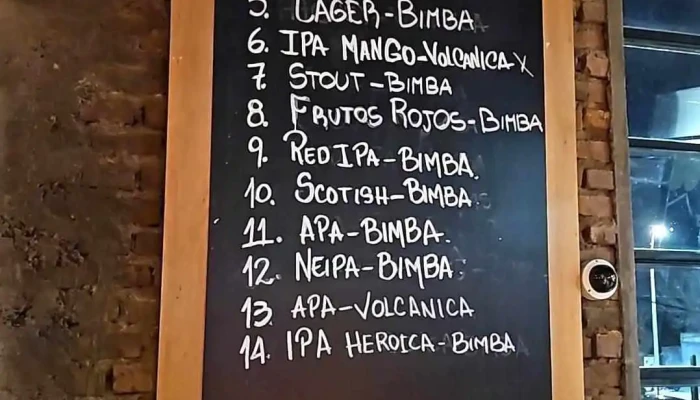 5. LAGER-BIMBA
6. IPA MANGO-VOLCANICA X
7. STOUT-BIMBA
8. FRUTOS ROJOS-BIMBA
9. RED IPA-BIMBA.
10. SCOTISH-BIMBA
11. APA-BIMBA.
12. NEIPA-BIMBA
13. APA-VOLCANICA
14. IPA HEROICA-BIMBA